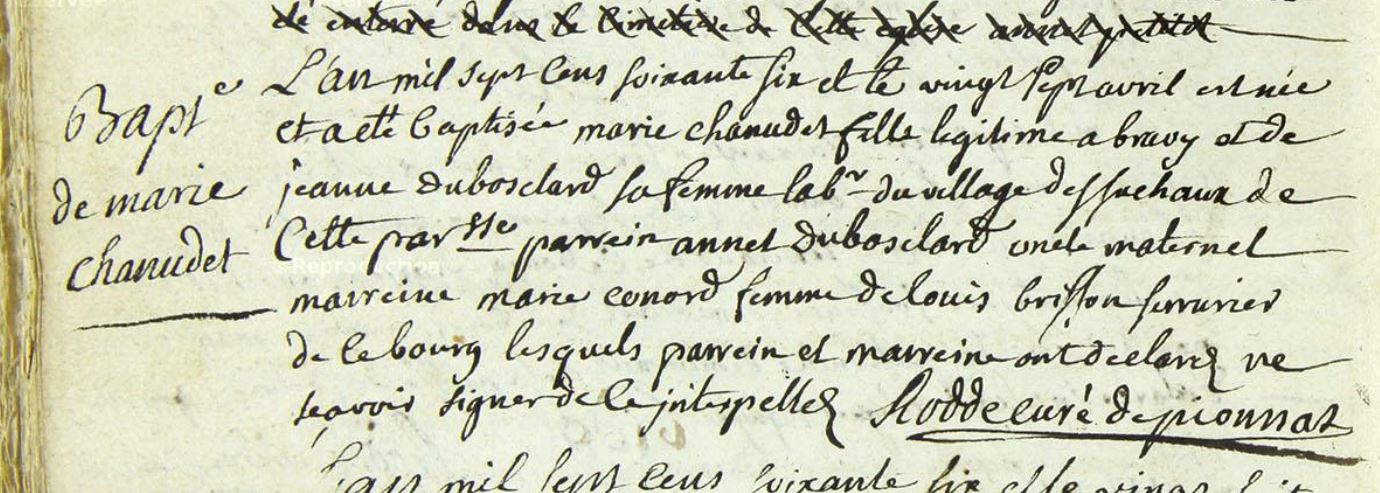 dé enterré dans le Cimetiere de Cette eglise
Bapt^e
de marie
chanudet
L'an mil sept Cens soixante six et le vingt sept avril est née
et a eté Baptisée marie chanudet fille legitime a bravy et de
jeanne dubosclard sa femme lab^r du village des suchaux de
Cette par^sse parrein annet dubosclard oncle maternel
marreine marie conord femme de louis brisson serrurier
de Ce bourg lesquels parrein et marreine ont declarez ne
scavoir signer de Ce jnterpellez Rodde curé de pionnat
L'an mil sept Cens soixante six et le vingt